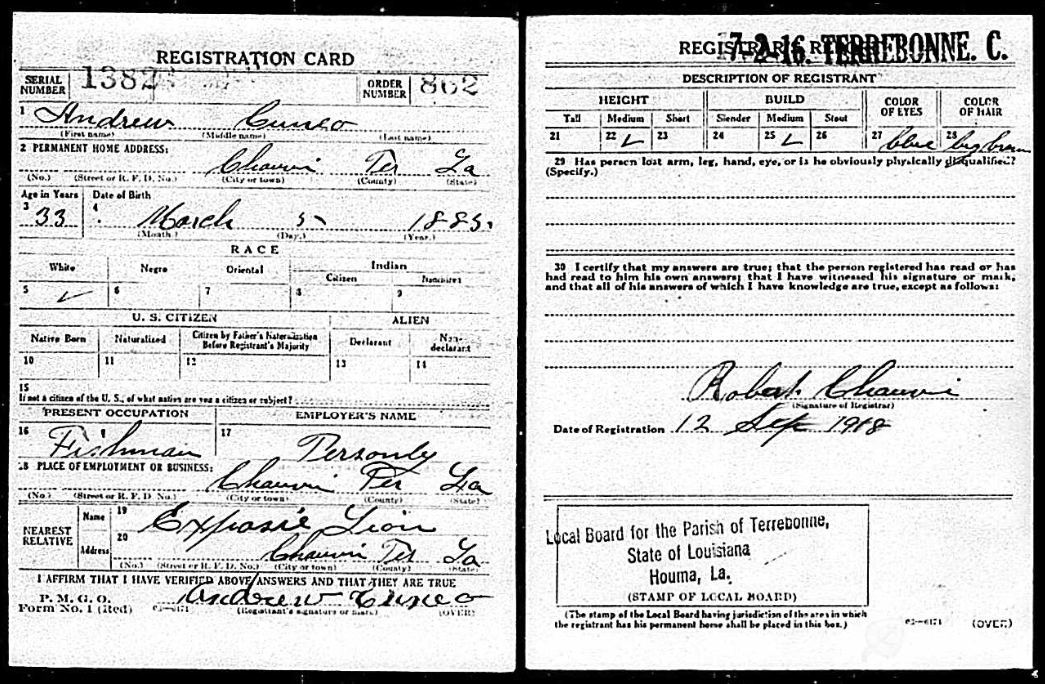 REGISTRATION CARD
SERIAL NUMBER 1382
ORDER NUMBER 862
1 Andrew Cuneo
(First name) (Middle name) (Last name)
2 PERMANENT HOME ADDRESS:
Chauvin Ter La
(No.) (Street or R. F. D. No.) (City or town) (County) (State)
Age in Years Date of Birth
3 33 4 March 5 1885
(Month.) (Day.) (Year.)
RACE
White Negro Oriental Indian
Citizen Noncitizen
5 ✓ 6 7 8 9
U. S. CITIZEN ALIEN
Native Born Naturalized Citizen by Father's Naturalization Before Registrant's Majority Declarant Non-declarant
10 11 12 13 14
15
If not a citizen of the U. S., of what nation are you a citizen or subject?
PRESENT OCCUPATION EMPLOYER'S NAME
16 Fishman 17 Personly
18 PLACE OF EMPLOYMENT OR BUSINESS:
Chauvin Ter La
(No.) (Street or R. F. D. No.) (City or town) (County) (State)
NEAREST RELATIVE Name 19 Lion
Address 20 Chauvin Ter La
(No.) (Street or R. F. D. No.) (City or town) (County) (State)
I AFFIRM THAT I HAVE VERIFIED ABOVE ANSWERS AND THAT THEY ARE TRUE
P. M. G. O.
Form No. 1 (Red) 03—6171 Andrew Cuneo
(Registrant's signature or mark) (OVER)
REGISTRAR'S REPORT
7-2-16. TERREBONNE. C.
DESCRIPTION OF REGISTRANT
HEIGHT BUILD COLOR OF EYES COLOR OF HAIR
Tall Medium Short Slender Medium Stout
21 22 ✓ 23 24 25 ✓ 26 27 blue 28
29 Has person lost arm, leg, hand, eye, or is he obviously physically disqualified?
(Specify.)
30 I certify that my answers are true; that the person registered has read or has
had read to him his own answers; that I have witnessed his signature or mark,
and that all of his answers of which I have knowledge are true, except as follows:
Robert Chauvin
(Signature of Registrar)
Date of Registration 12 Sep 1918
Local Board for the Parish of Terrebonne,
State of Louisiana
Houma, La.
(STAMP OF LOCAL BOARD)
(The stamp of the Local Board having jurisdiction of the area in which
the registrant has his permanent home shall be placed in this box.)
03—6171 (OVER)